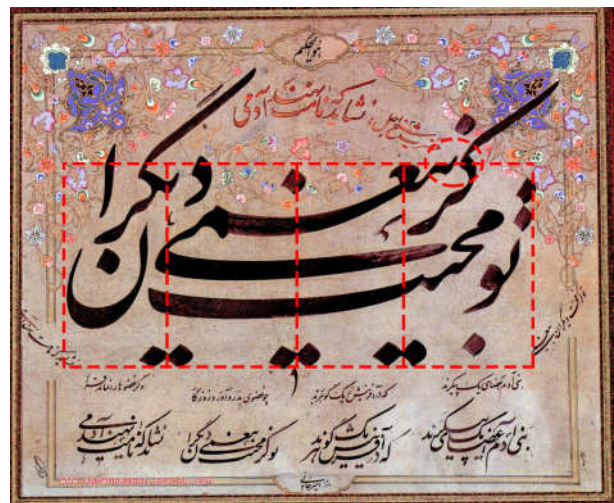 نشاید که نامت نهند آدمی
تو کز محنت دیگران بی غمی
بنی آدم اعضای یک پیکرند که در آفرینش ز یک گوهرند چو عضوی بدرد آورد روزگار دگر عضوها را نماند قرار
بنی آدم اعضای یک پیکرند که در آفرینش ز یک گوهرند تو کز محنت دیگران بی غمی نشاید که نامت نهند آدمی